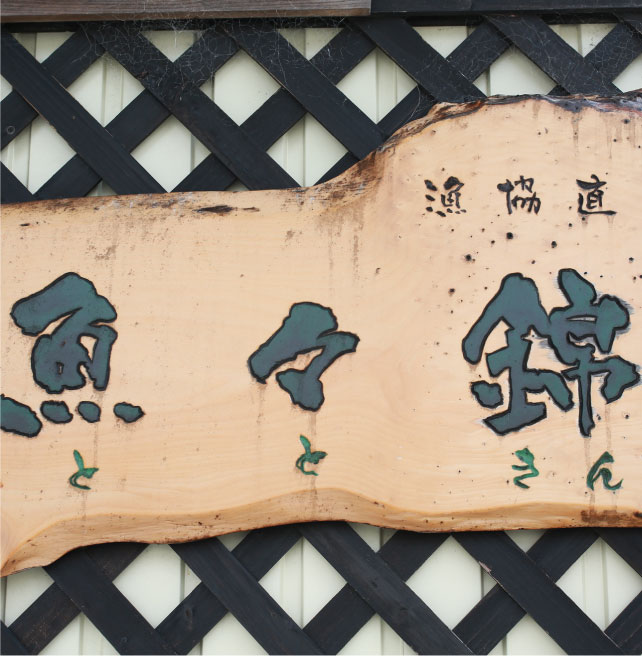 漁協直
魚々錦
とときん